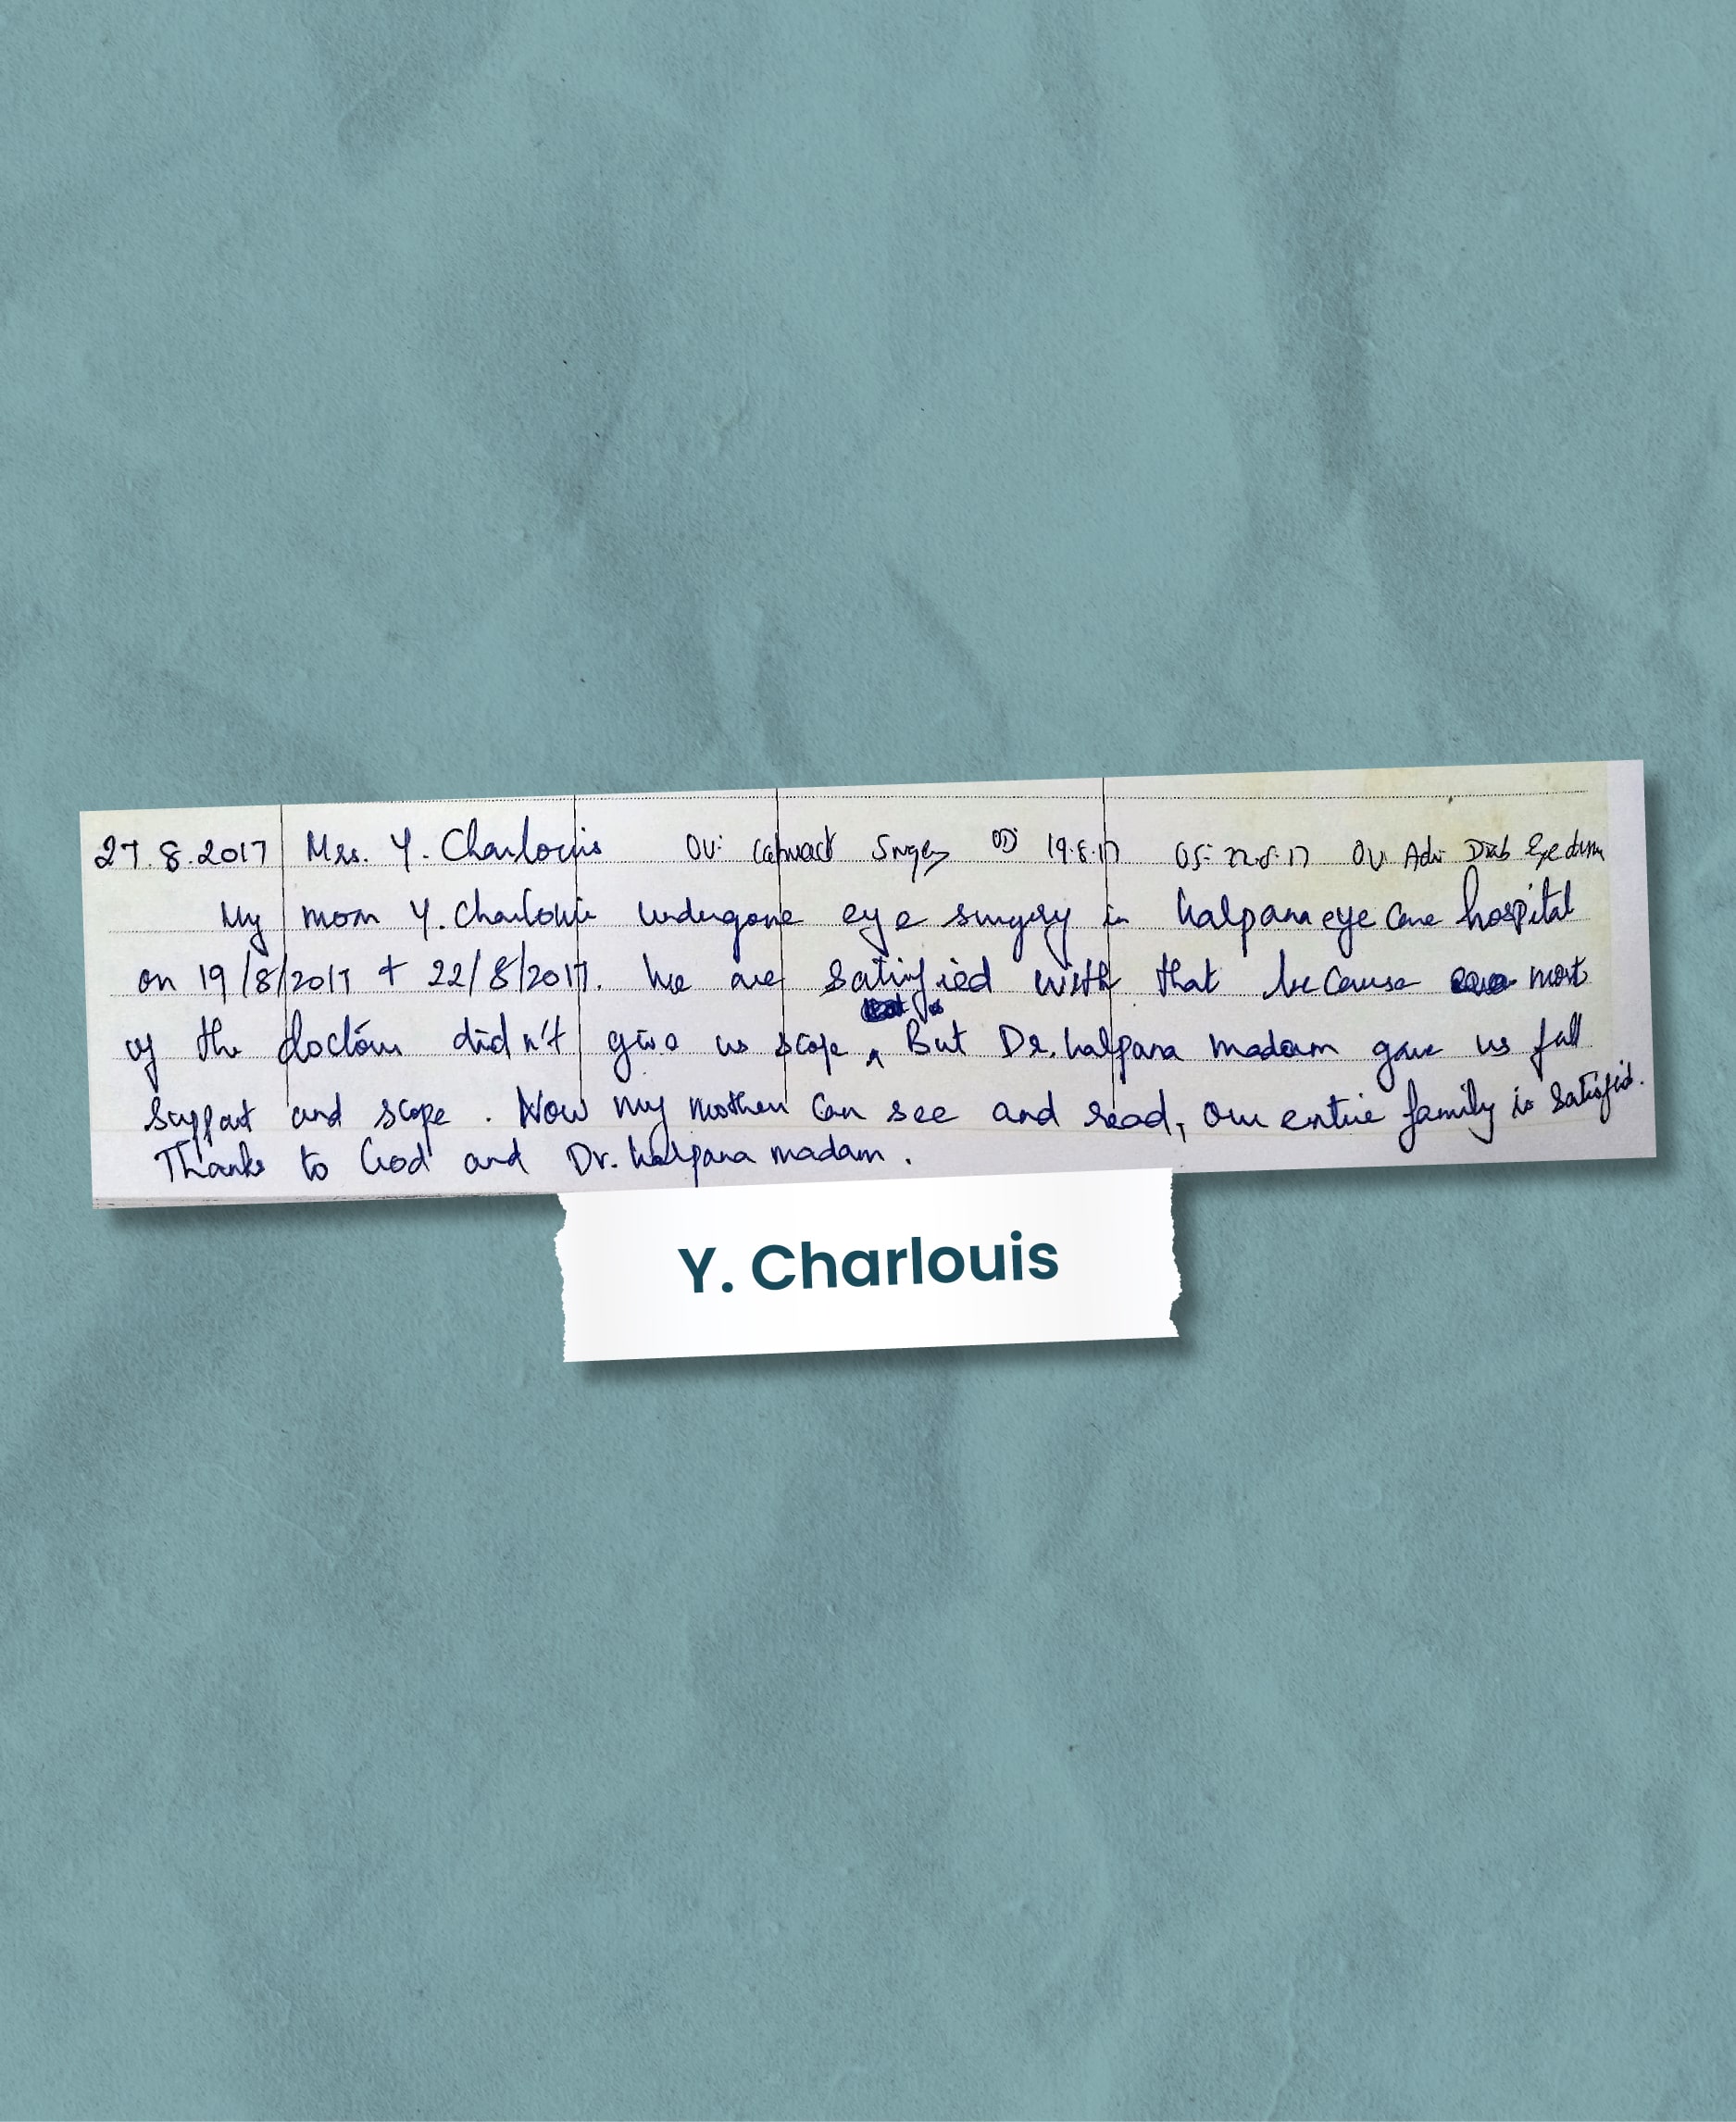 27.8.2017 Mrs. Y. Charlouis OU: Cataract Surgery OD 19.8.17 OS: 22.8.17 OU Adv Diab Eye
My mom Y. Charlouis undergone eye surgery in kalpana eye care hospital
on 19/8/2017 + 22/8/2017. We are satisfied with that because most
of the doctors didn't give us scope. But Dr. kalpana madam gave us full
support and scope. Now my mother can see and read, our entire family is satisfied.
Thanks to God and Dr. kalpana madam.
Y. Charlouis